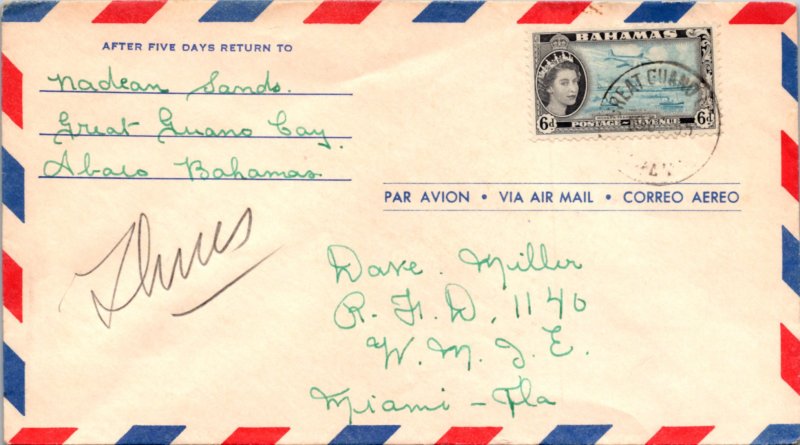 AFTER FIVE DAYS RETURN TO
Nadean Sands.
Great Guano Cay.
Abaco Bahamas
BAHAMAS
6d
POSTAGE & REVENUE
6d
REAT GUANO
PAR AVION • VIA AIR MAIL • CORREO AEREO
Dave. Miller
R. F. D. 1140
W. M. I. E.
Miami - Fla